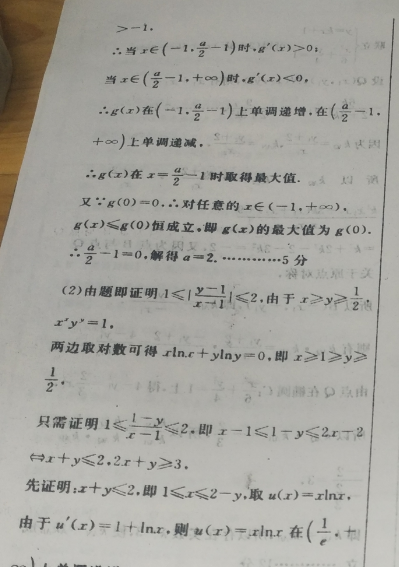 >-1,
∴当x∈(-1,a/2-1)时,g'(x)>0;
当x∈(a/2-1,+∞)时,g'(x)<0,
∴g(x)在(-1,a/2-1)上单调递增,在(a/2-1,
+∞)上单调递减,
∴g(x)在x=a/2-1时取得最大值.
又∵g(0)=0,∴对任意的x∈(-1,+∞),
g(x)≤g(0)恒成立,即g(x)的最大值为g(0).
∴a/2-1=0,解得a=2. …………5分
(2)由题即证明1≤|y-1/x-1|≤2,由于x≥y≥1/2,
x^x y^y=1,
两边取对数可得xlnx+ylny=0,即x≥1≥y≥
1/2,
只需证明1≤1-y/x-1≤2,即x-1≤1-y≤2x-2
⇔x+y≤2,2x+y≥3,
先证明:x+y≤2,即1≤x≤2-y,取u(x)=xlnx,
由于u'(x)=1+lnx,则u(x)=xlnx在(1/e,+